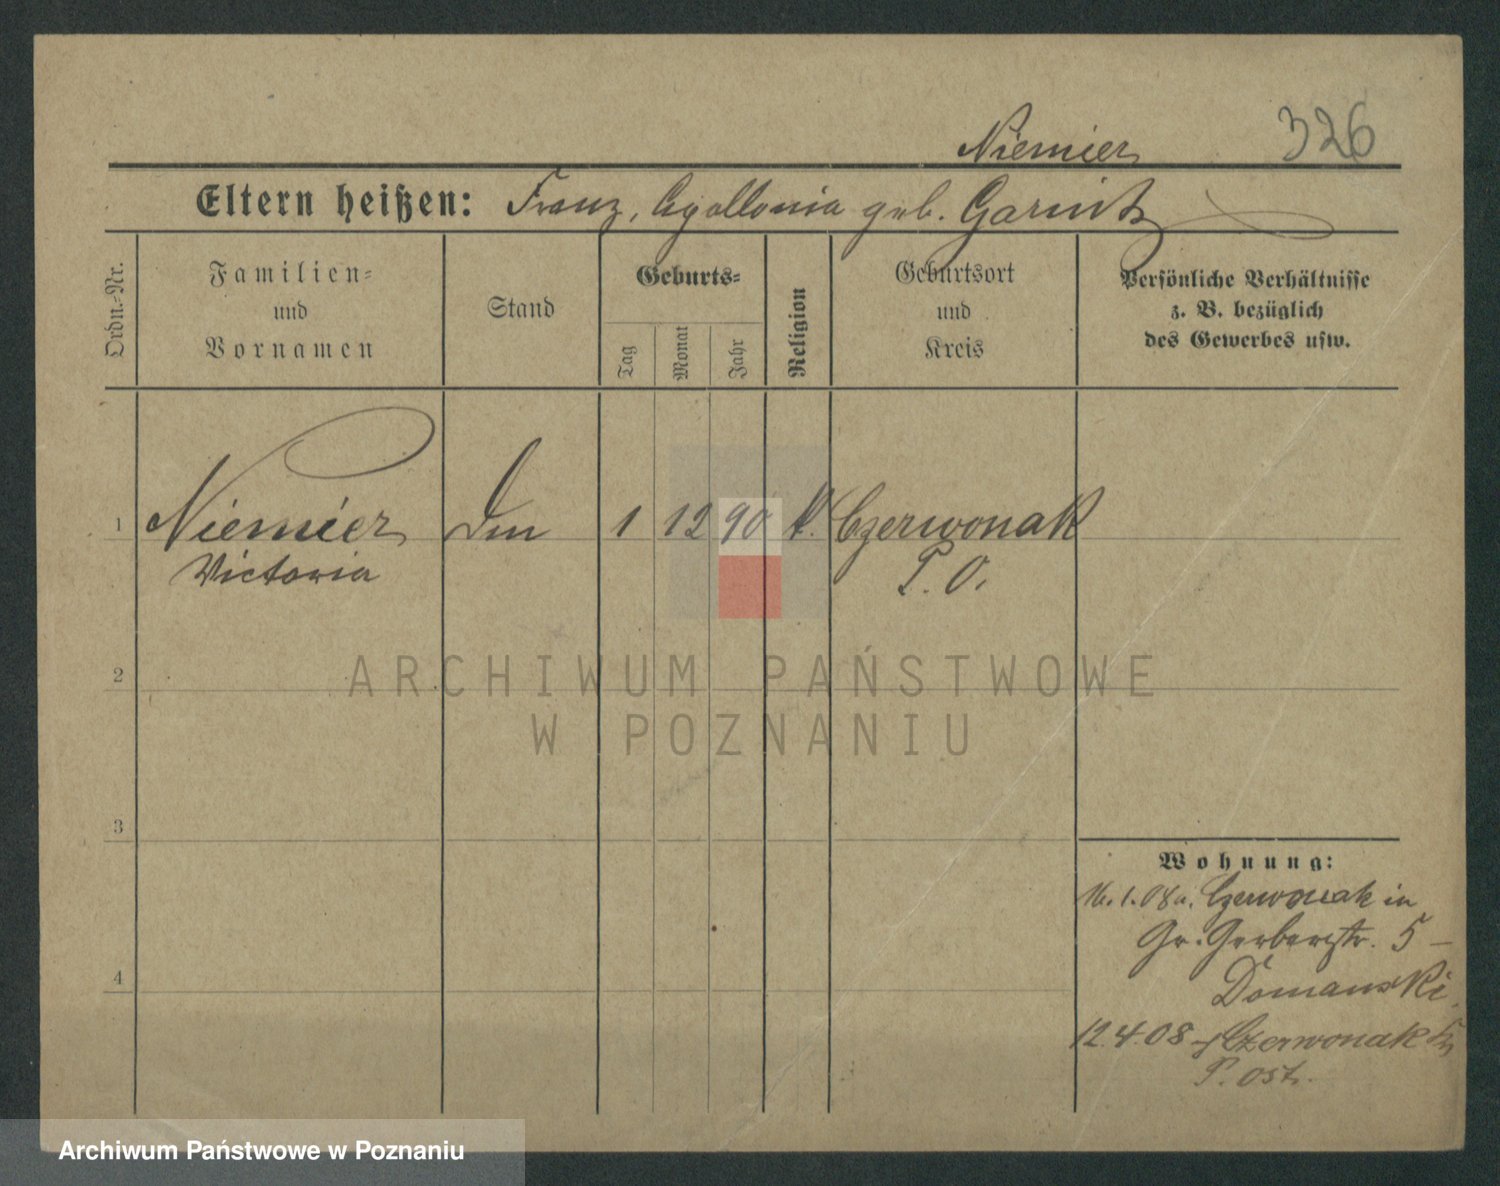 Niemier 326
Eltern heißen: Franz, Apollonia geb. Garnitz
Ordn.-Nr.
Familien-
und
Vornamen
Stand
Geburts-
Tag
Monat
Jahr
Religion
Geburtsort
und
Kreis
Persönliche Verhältnisse
z. B. bezüglich
des Gewerbes usw.
1 Niemier 1 12 90 k. Czerwonak
Victoria P. O.
2
3
4
ARCHIWUM PAŃSTWOWE
W POZNANIU
Wohnung:
16.1.08 a. Czerwonak in
Gr. Gerberstr. 5 –
Domanski
12.4.08 Czerwonak
P. Ost.
Archiwum Państwowe w Poznaniu